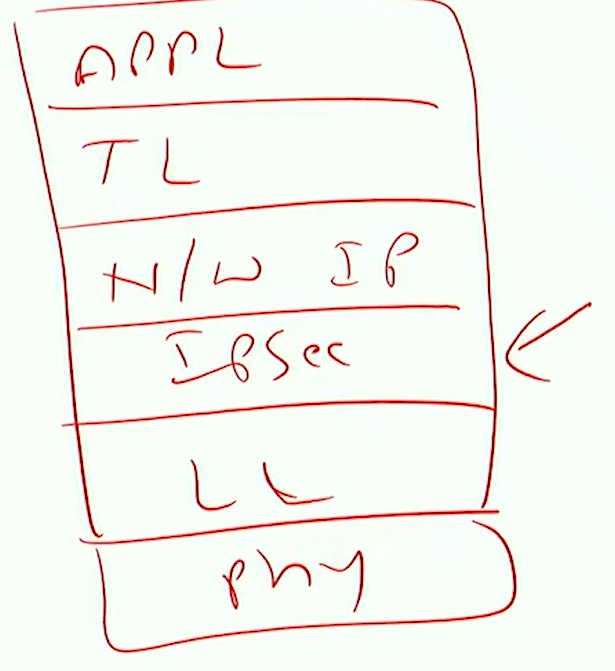 APPL
TL
N/W IP
IPSec
LL
phy